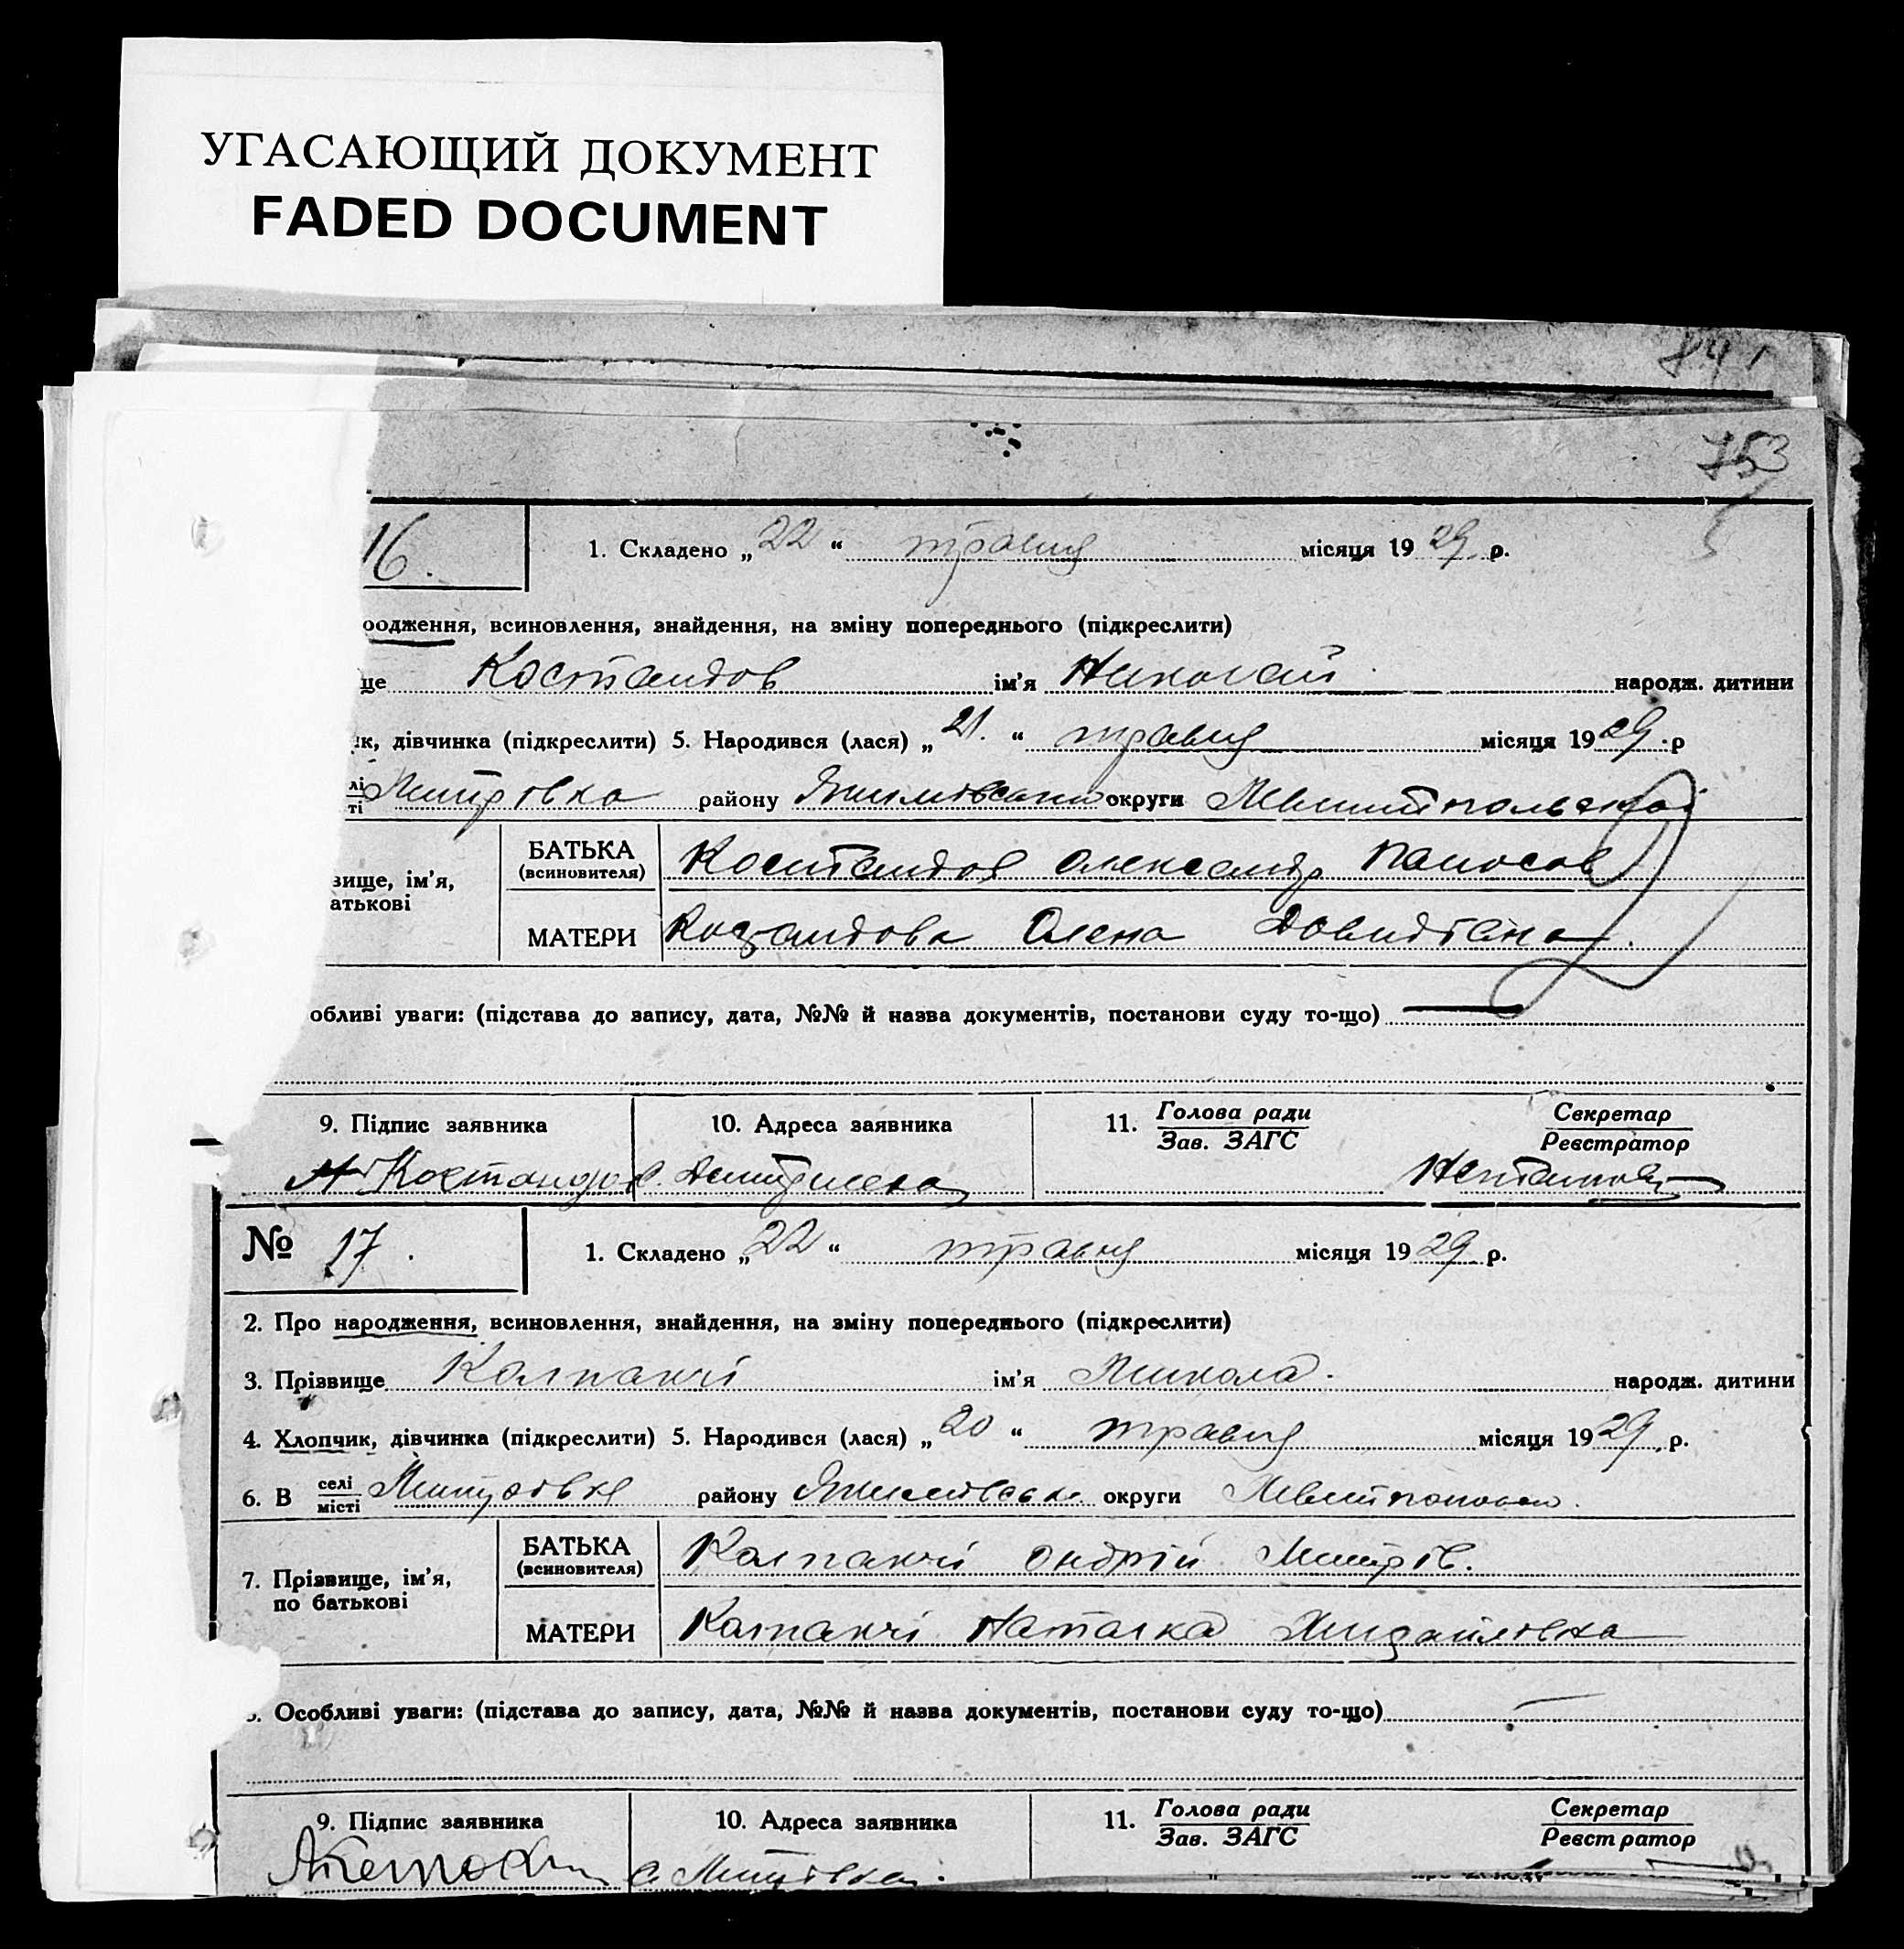 УГАСАЮЩИЙ ДОКУМЕНТ
FADED DOCUMENT
841
753
16.
1. Складено „22“ травня місяця 1929 р.
родження, всиновлення, знайдення, на зміну попереднього (підкреслити)
ще Костандов ім'я Николай народж. дитини
ик, дівчинка (підкреслити) 5. Народився (лася) „21.“ травня місяця 1929 р
лі
ті
Митровка району округи
вище, ім'я,
атькові
БАТЬКА
(всиновителя)
Костандов Олександр
МАТЕРИ
Костандова Олена
обливі уваги: (підстава до запису, дата, №№ й назва документів, постанови суду то-що)
9. Підпис заявника
10. Адреса заявника
11. Голова ради
Зав. ЗАГС
Секретар
Реєстратор
Костандов
№ 17.
1. Складено „22“ травня місяця 1929 р.
2. Про народження, всиновлення, знайдення, на зміну попереднього (підкреслити)
3. Прізвище Калпакчі ім'я Микола. народж. дитини
4. Хлопчик, дівчинка (підкреслити) 5. Народився (лася) „20“ травня місяця 1929 р.
6. В селі
місті
Митровка району округи
7. Прізвище, ім'я,
по батькові
БАТЬКА
(всиновителя)
Калпакчі Ондрій Митрів.
МАТЕРИ
Калпакчі Наталка Михайловна
Особливі уваги: (підстава до запису, дата, №№ й назва документів, постанови суду то-що)
9. Підпис заявника
10. Адреса заявника
11. Голова ради
Зав. ЗАГС
Секретар
Реєстратор
с. Митровка.